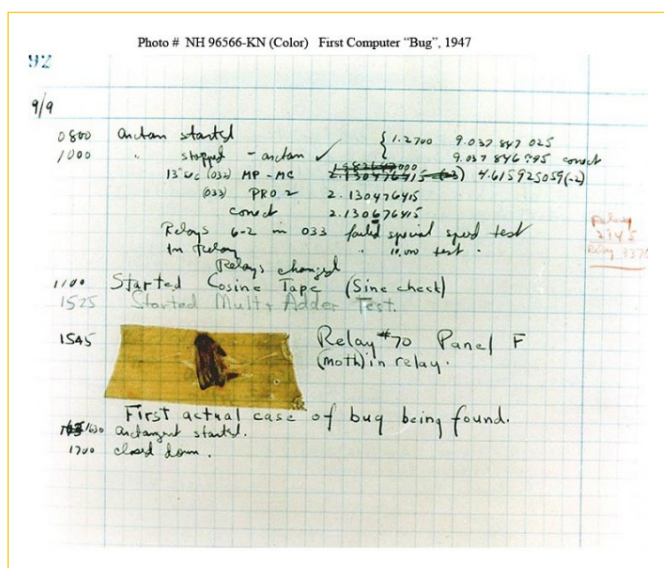 Photo # NH 96566-KN (Color) First Computer “Bug”, 1947
92
9/9
0800 antan started
1000 " stopped - antan ✓
{ 1.2700 9.037 847 025
9.037 846 795 conect
13" uc (032) MP - MC 2.130476415 4.615925059(-2)
(033) PRO 2 2.130476415
conect 2.130676415
Relays 6-2 in 033 failed special speed test
in Relay " 10.000 test .
Relays changed
Relay
2145
Relay 3370
1100 Started Cosine Tape (Sine check)
1525 Started Mult + Adder Test.
1545 Relay #70 Panel F
(moth) in relay.
First actual case of bug being found.
1630 antangent started.
1700 closed down.